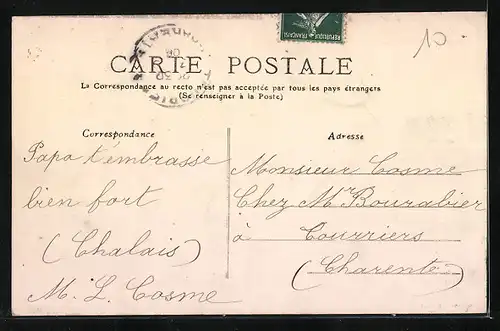 REPUBLIQUE FRANÇAISE
10
CARTE POSTALE
La Correspondance au recto n'est pas acceptée par tous les pays étrangers
(Se renseigner à la Poste)
Correspondance
Papa t'embrasse
bien fort
(Chalais)
M. L. Cosme
Adresse
Monsieur Cosme
Chez Mr Bourabier
à Courriers
(Charente)